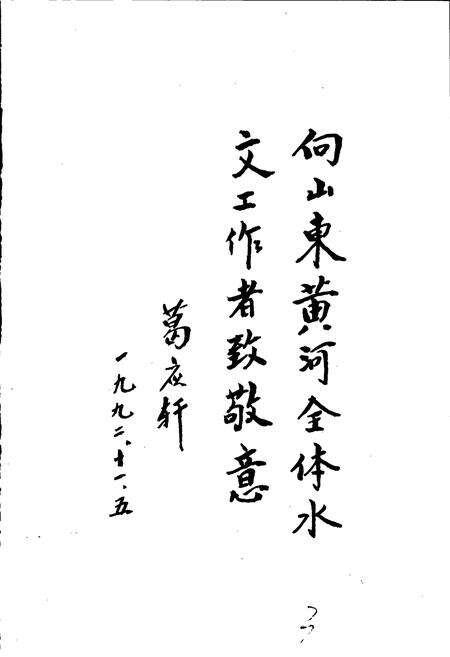 向山東黄河全体水
文工作者致敬意
葛应轩
一九九二、十一、五